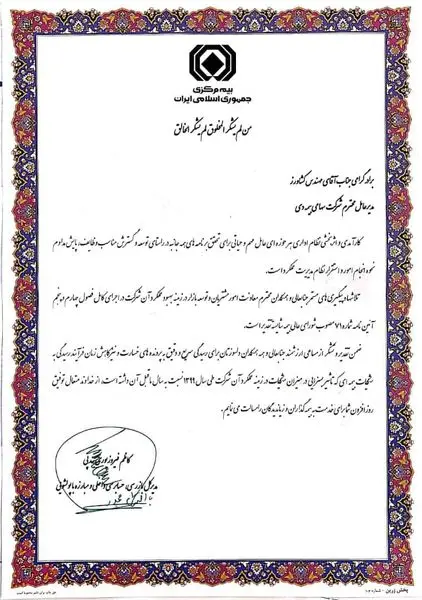 بیمه مرکزی
جمهوری اسلامی ایران
من لم یشکر المخلوق لم یشکر الخالق
برادر گرامی جناب آقای مهندس کشاورز
مدیرعامل محترم شرکت سهامی بیمه دی
کارآمدی و اثربخشی نظام اداری هر حوزه ای عامل مهم و حیاتی برای تحقق برنامه های همه جانبه در راستای توسعه و گسترش مناسب وظایف، پایش مداوم
نحوه انجام امور و استقرار نظام مدیریت عملکرد است.
تلاشها و پیگیری های مستمر جنابعالی و همکاران محترم معاونت امور مشتریان و توسعه بازار در زمینه بهبود عملکرد آن شرکت در اجرای کامل فصول چهارم و پنجم
آئین نامه شماره ۷۱ مصوب شورای عالی بیمه شایسته تقدیر است.
ضمن تقدیر و تشکر از مساعی ارزشمند جنابعالی و همه همکاران دلسوزتان برای رسیدگی سریع و دقیق به پرونده های خسارت و نیز کاهش زمان فرآیند رسیدگی به
شکایات بیمه ای که تاثیر بسزایی در میزان شکایات در زمینه عملکرد آن شرکت طی سال ۱۳۹۹ نسبت به سال ماقبل آن داشته است، از خداوند متعال توفیق
روز افزون شما برای خدمت به بیمه گذاران و زیاندیدگان را مسألت می نمایم.
کاظم فیروزپوری
مدیرکل بازرسی، حسابرسی داخلی و مبارزه با پولشویی
پخش زرین - شماره ۱۰۶